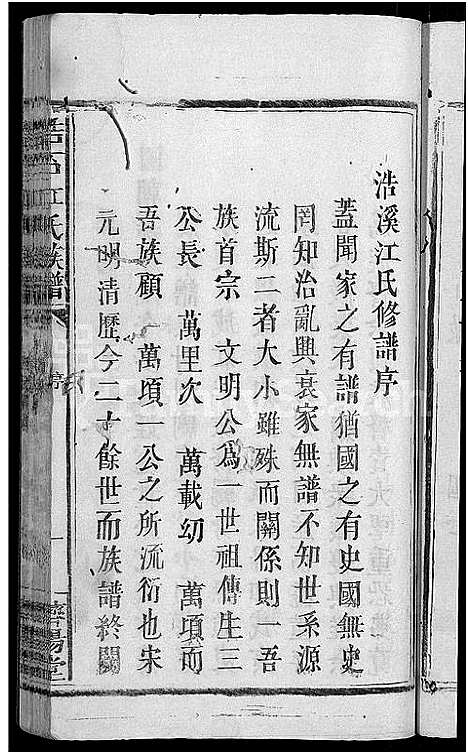 浩溪江氏修譜序
蓋聞家之有譜猶國之有史國無史
罔知治亂興衰家無譜不知世系源
流斯二者大小雖殊而關係則一吾
族首宗 文明公為一世祖傳生三
公長 萬里次 萬載幼 萬頃而
吾族顧 萬頃一公之所流衍也宋
元明清歷今二十餘世而族譜終闕
江氏族譜
序
一
濟陽堂